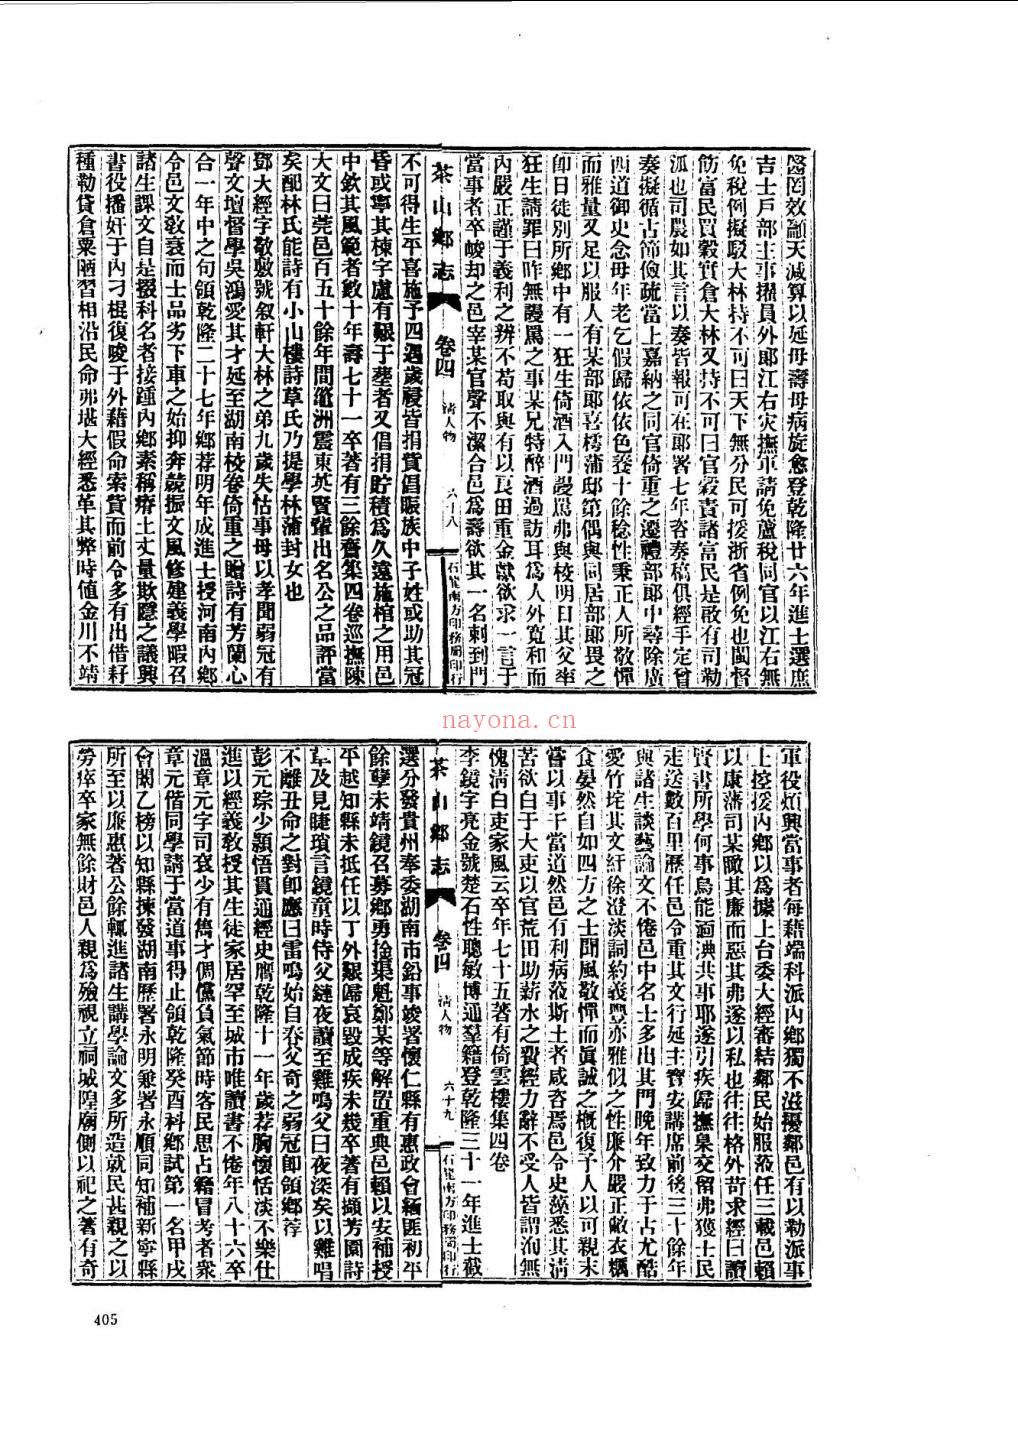 醫罔效籲天減算以延母壽母病旋愈登乾隆廿六年進士選庶
吉士戶部主事擢員外郞江右灾撫軍請免蘆稅同官以江右無
免稅例擬駁大林持不可曰天下無分民可援浙省例免也閩督
飭富民買穀實倉大林又持不可曰官穀責諸富民是啟有司勒
派也司農如其言以奏皆報可在郞署七年咨奏稿俱經手定曾
奏擬循古節儉疏當上嘉納之同官倚重之遷禮部郞中尋除廣
西道御史念母年老乞假歸依依色養十餘稔性秉正人所敬憚
而雅量又足以服人有某部郞喜樗蒲邸第偶與同居部郞畏之
卽日徒別所鄉中有一狂生倚酒入門謾罵弗與校明日其父率
狂生請罪曰昨無謾罵之事某兄特醉酒過訪耳爲人外寬和而
內嚴正謹于義利之辨不苟取與有以良田重金獻欲求一言于
當事者卒峻却之邑宰某官聲不潔合邑爲壽欲其一名剌到門
茶山鄉志 卷四 淸人物 六十八 石龍南方印務局印行
不可得生平喜施予四遇歲祲皆捐貲倡賑族中子姓或助其冠
昏或寧其棟字慮有艱于塟者又倡捐貯積爲久遠施棺之用邑
中欽其風範者數十年壽七十一卒著有三餘齋集四卷巡撫陳
大文曰莞邑百五十餘年間鼇洲震東英賢輩出名公之品評當
矣配林氏能詩有小山樓詩草氏乃提學林蒲封女也
鄧大經字敬敷號叙軒大林之弟九歲失怙事母以孝聞弱冠有
聲文壇督學吳鴻愛其才延至湖南校卷倚重之贈詩有芳蘭心
合一年中之句領乾隆二十七年鄉荐明年成進士授河南內鄉
令邑文敎衰而士品劣下車之始抑奔競振文風修建義學暇召
諸生課文自是掇科名者接踵內鄉素稱瘠土丈量欺隱之議興
書役播奸于內刁棍復唆于外藉假命索貲而前令多有出借籽
種勒貸倉粟陋習相沿民命弗堪大經悉革其弊時値金川不靖
軍役煩興當事者每藉端科派內鄉獨不滋擾鄰邑有以勒派事
上控援內鄉以爲據上台委大經審結鄰民始服蒞任三載邑賴
以康藩司某瞰其廉而惡其弗遂以私也往往格外苛求經曰讀
賢書所學何事烏能涊淟共事耶遂引疾歸撫臬交留弗獲士民
走送數百里歷任邑令重其文行延主寶安講席前後三十餘年
與諸生談藝論文不倦邑中名士多出其門晚年致力于古尤酷
愛竹垞其文紆徐澄淡詞約義豐亦雅似之性廉介嚴正敝衣糲
食晏然自如四方之士聞風敬憚而眞誠之槪復予人以可親未
嘗以事干當道然邑有利病蒞斯土者咸咨焉邑令史藻悉其淸
苦欲白于大吏以官荒田助薪水之費經力辭不受人皆謂洵無
愧淸白吏家風云卒年七十五著有倚雲樓集四卷
李鏡字亮金號楚石性聰敏博通羣籍登乾隆三十一年進士截
茶山鄉志 卷四 淸人物 六十九 石龍南方印務局印行
選分發貴州奉委湖南市鉛事竣署懷仁縣有惠政會緬匪初平
餘孽未靖鏡召募鄉勇擒渠魁鄭某等解置重典邑賴以安補授
平越知縣未抵任以丁外艱歸哀毀成疾未幾卒著有擷芳園詩
草及見睫瑣言鏡童時侍父鏈夜讀至雞鳴父曰夜深矣以雞唱
不離丑命之對卽應曰雷鳴始自春父奇之弱冠卽領鄉荐
彭元琮少穎悟貫通經史膺乾隆十一年歲荐胸懷恬淡不樂仕
進以經義敎授其生徒家居罕至城市唯讀書不倦年八十六卒
溫章元字司袞少有儁才倜儻負氣節時客民思占籍冒考者衆
章元偕同學請于當道事得止領乾隆癸酉科鄉試第一名甲戌
會闈乙榜以知縣揀發湖南歷署永明兼署永順同知補新寧縣
所至以廉惠著公餘輒進諸生講學論文多所造就民甚親之以
勞瘁卒家無餘財邑人親爲殮視立祠城隍廟側以祀之著有奇
nayona.cn
405